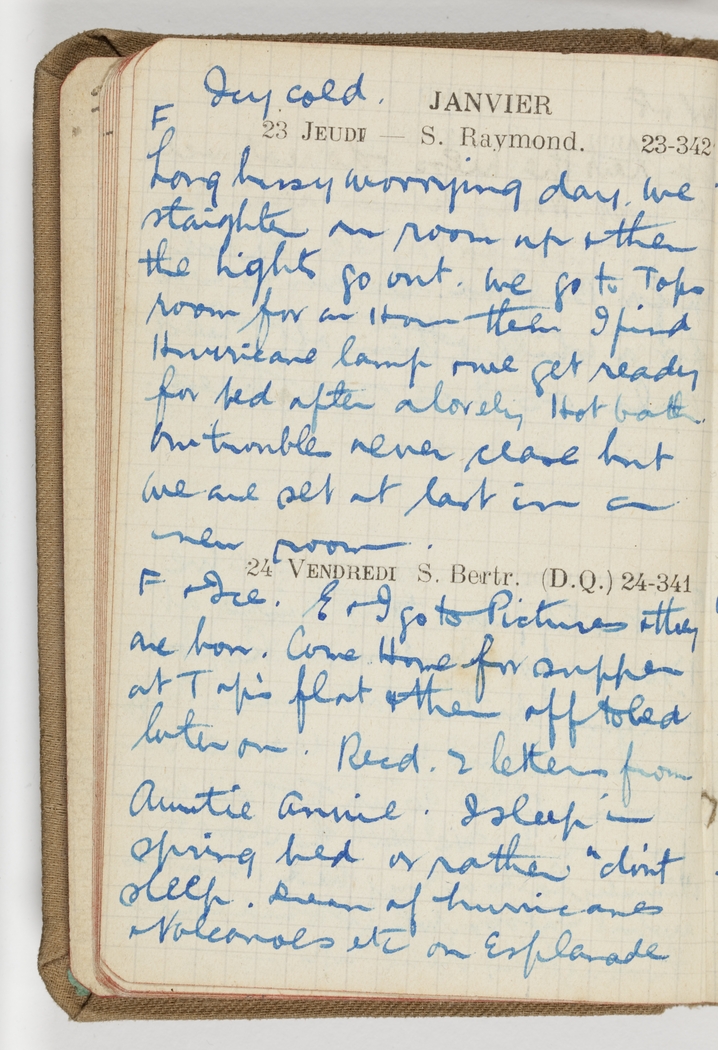 Icy cold. JANVIER
F
23 JEUDI — S. Raymond. 23-342
Long busy worrying day. We
staighten our room up & then
the lights go out. We go to Tap's
room for an Hour then I find
Hurricane lamp & we get ready
for bed after a lovely Hot bath.
Our troubles never cease but
we are set at last in our
new room.
24 VENDREDI S. Bertr. (D.Q.) 24-341
F & Ice. E & I go to Pictures & they
are bon. Come Home for supper
at Tap's flat & then off to bed
later on. Recd. 2 letters from
Auntie Annie. I sleep in
spring bed or rather "don't
sleep. Dream of hurricanes
& Volcanoes etc on Esplanade